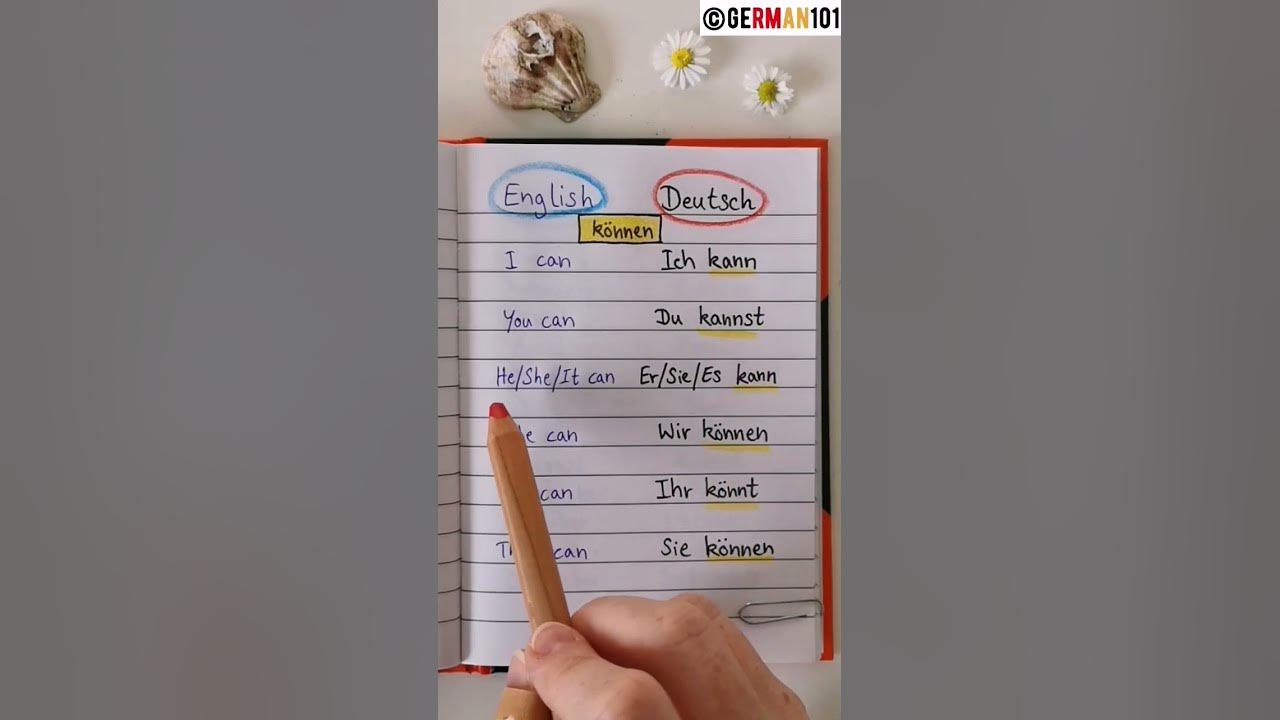 ©GERMAN101
English Deutsch
können
I can Ich kann
You can Du kannst
He/She/It can Er/Sie/Es kann
can Wir können
can Ihr könnt
can Sie können